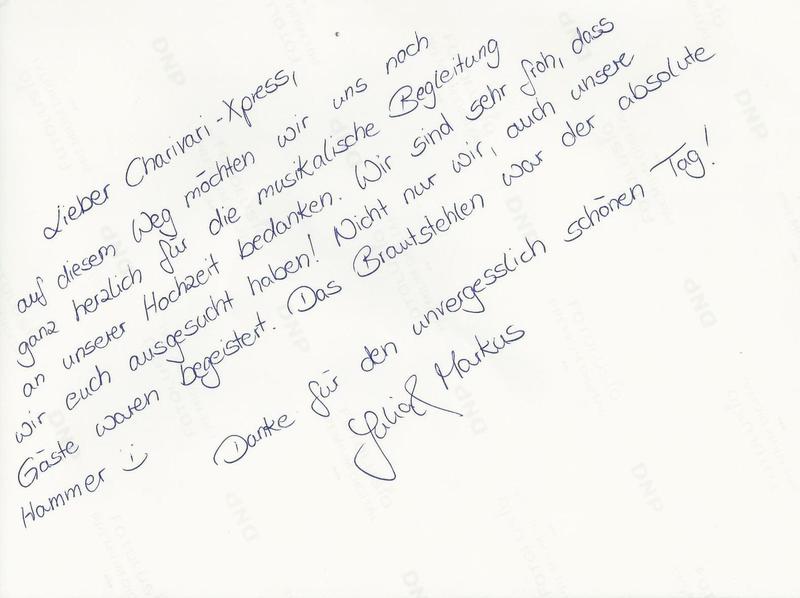 Lieber Charivari-Xpress,
auf diesem Weg möchten wir uns noch
ganz herzlich für die musikalische Begleitung
an unserer Hochzeit bedanken. Wir sind sehr froh, dass
wir euch ausgesucht haben! Nicht nur wir, auch unsere
Gäste waren begeistert. Das Brautstehlen war der absolute
Hammer :)
Danke für den unvergesslich schönen Tag!
Markus
DNP
DNP
DNP
DNP
DNP
DNP
DNP
DNP
DNP